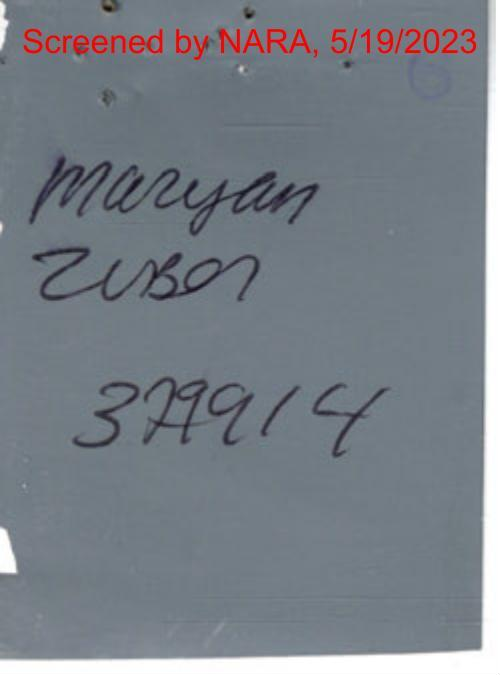 Screened by NARA, 5/19/2023
6
Maryan
Zuber
379914